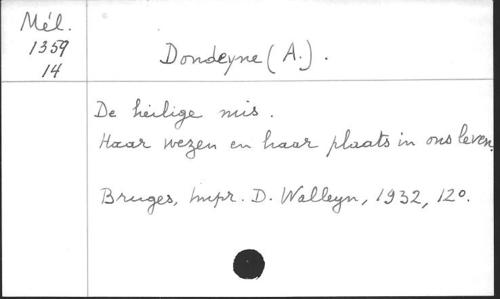 Mél.
1359
14
Dondeyne (A.).
De heilige mis.
Haar wezen en haar plaats in ons leven.
Bruges, Impr. D. Walleyn, 1932, 12o.